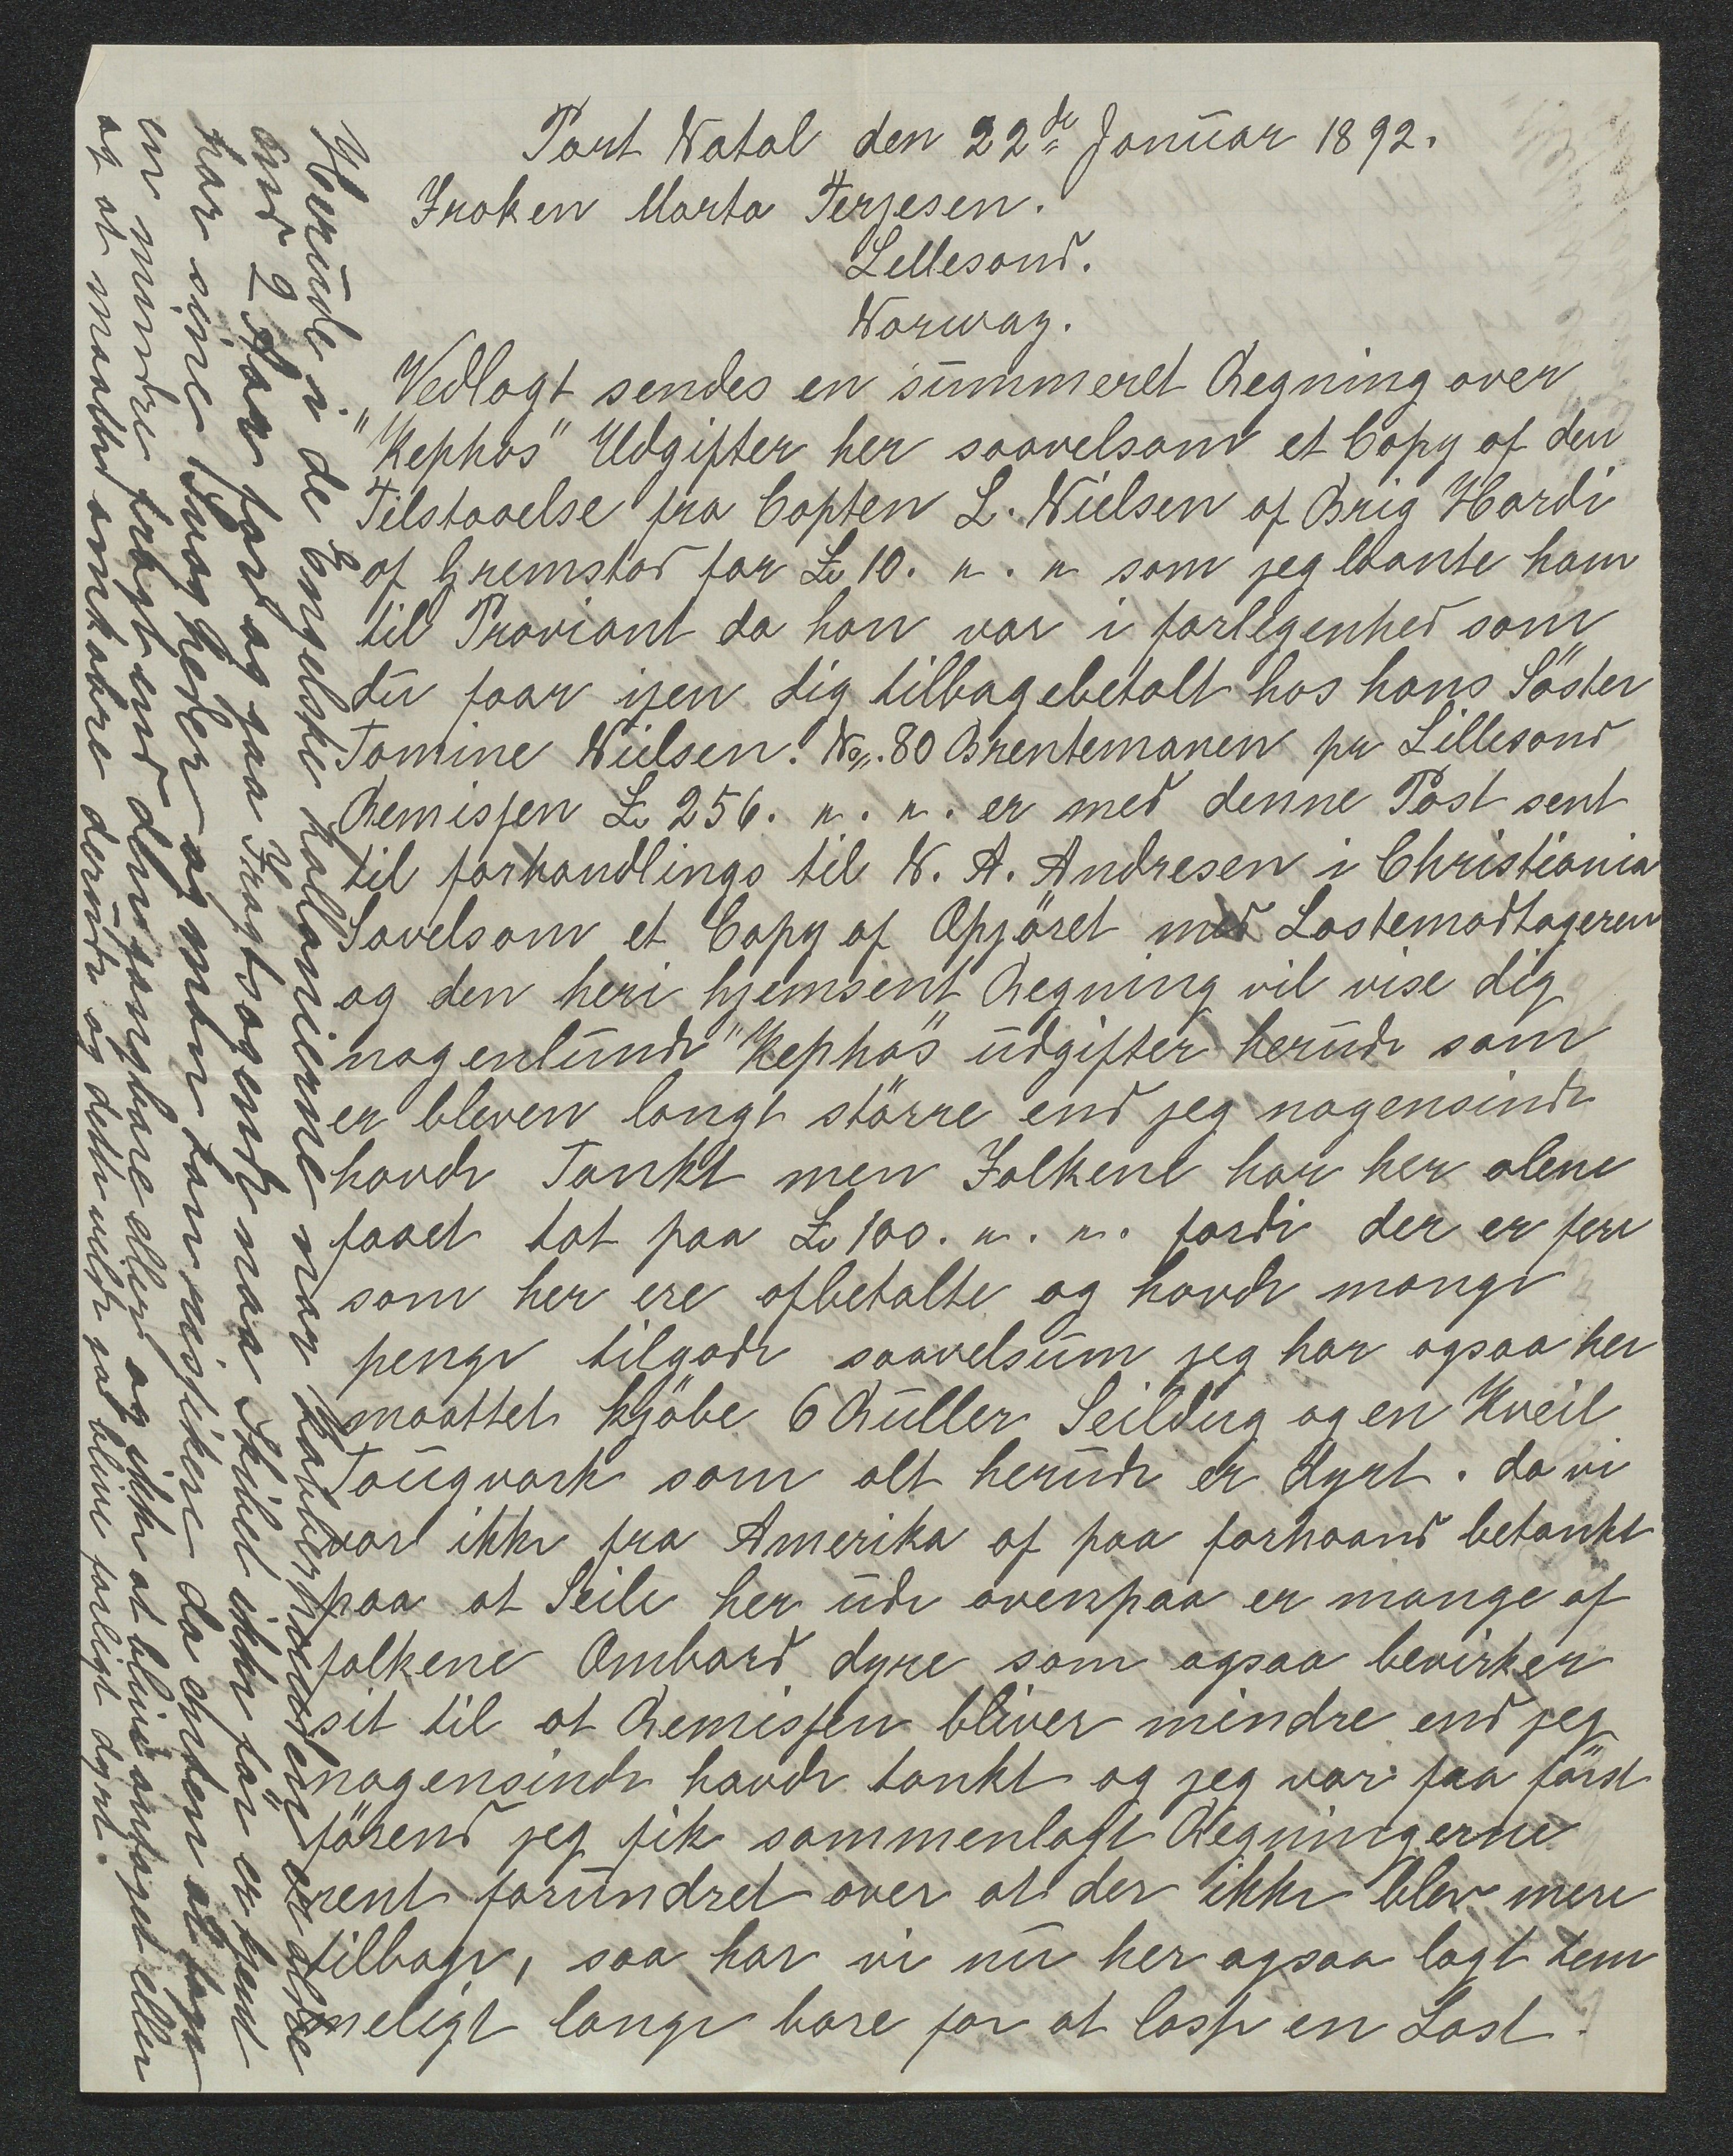 Port Natal den 22de Januar 1892.
Frøken Marta Terjesen.
Lillesand.
Norway.
Vedlagt sendes en summeret Regning over
"Kephas" Udgifter her saavelsom et Copy af den
Tilstaaelse fra Capten L. Nielsen af Brig Hardi
af Gremstad for £ 10. „ . „ som jeg laante ham
til Proviant da han var i forlegenhed som
du faar ijen dig tilbagebetalt hos hans Söster
Tomine Nielsen. No. 80 Brentemanen pr Lillesand
Remissen £ 256. „ . „ . er med denne Post sent
til forhandlings til N. A. Andresen i Christiania
Savelsom et Copy af Opjöret med Lastemodtageren
og den heri hjemsent Regning vil vise dig
nogenlunde "Kephas" udgifter herude som
er bleven langt större end jeg nogensinde
havde Tankt men Folkene har her alene
faaet tat paa £ 100. „ . „ . fordi der er fere
som her ere afbetalte og havde mange
penge tilgode saavelsum jeg har ogsaa her
maattet kjöbe 6 Ruller Seildug og en Kveil
Tougvark som alt herude er dyrt. da vi
var ikke fra Amerika af paa forhaand betankt
paa at Seile her ude ovenpaa er mange af
folkene Ombord dyre som ogsaa bevirker
sit til at Remissen bliver mindre end jeg
nogensinde havde tankt og jeg var paa först
förend jeg fik sammenlagt Regningerne
rent forundret over at der ikke blev mere
tilbage, saa har vi nu her ogsaa lagt tem
meligt lange bare for at losse en Last.
Herude i de Engelske kollonierne naar en
end 2 Aar for og faa Fragtsogende naa Skibet ikke för er
har sine og man tar risikoen da enten at tage
en mindre fragt end den gangbare eller og ikke at blive antaget eller
og at maatte omkobre derinde og dette vilde jod blive farligt dyrt.